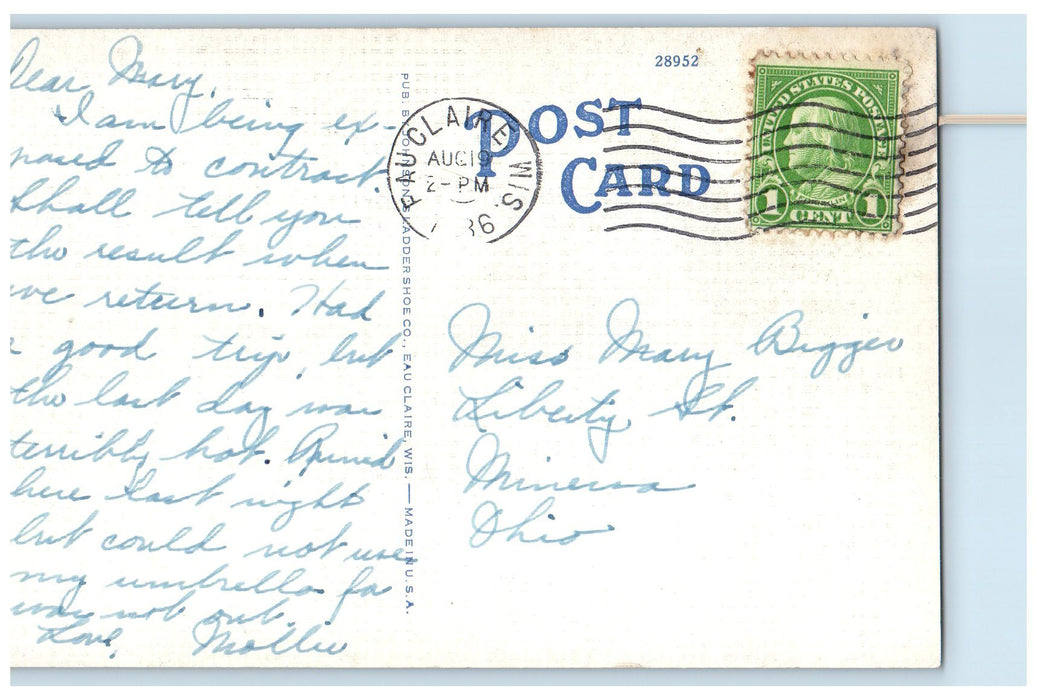 Dear Mary,
I am being ex-
posed to contract.
Shall tell you
the result when
we return. Had
a good trip, but
the last day was
terribly hot. Arrived
here last night
but could not use
my umbrella for
was not out.
Love, Mollie
PUB. BY JOHNSON'S LADDERSHOE CO., EAU CLAIRE, WIS. — MADE IN U.S.A.
28952
POST
CARD
EAU CLAIRE WIS.
AUG 19
2-PM
36
UNITED STATES POSTAGE
1 CENT 1
FRANKLIN
Miss Mary Bigger
Liberty St.
Minerva
Ohio